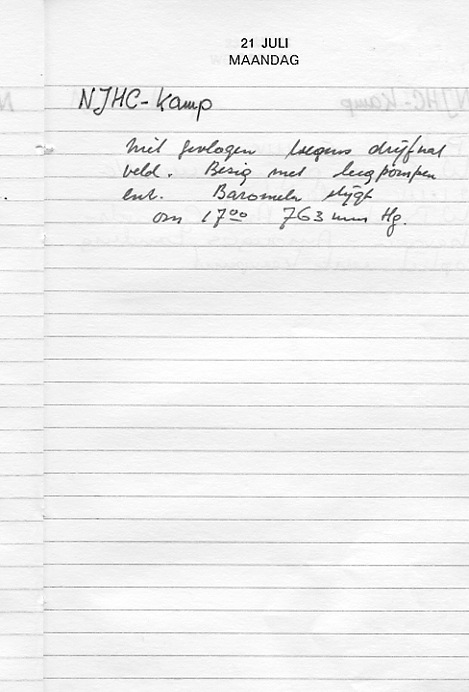 21 JULI
MAANDAG
NJHC-Kamp
Niet gevlogen wegens drijfnat
veld. Bezig met leegpompen
enz. Barometer stijgt
om 17⁰⁰ 763 mm Hg.